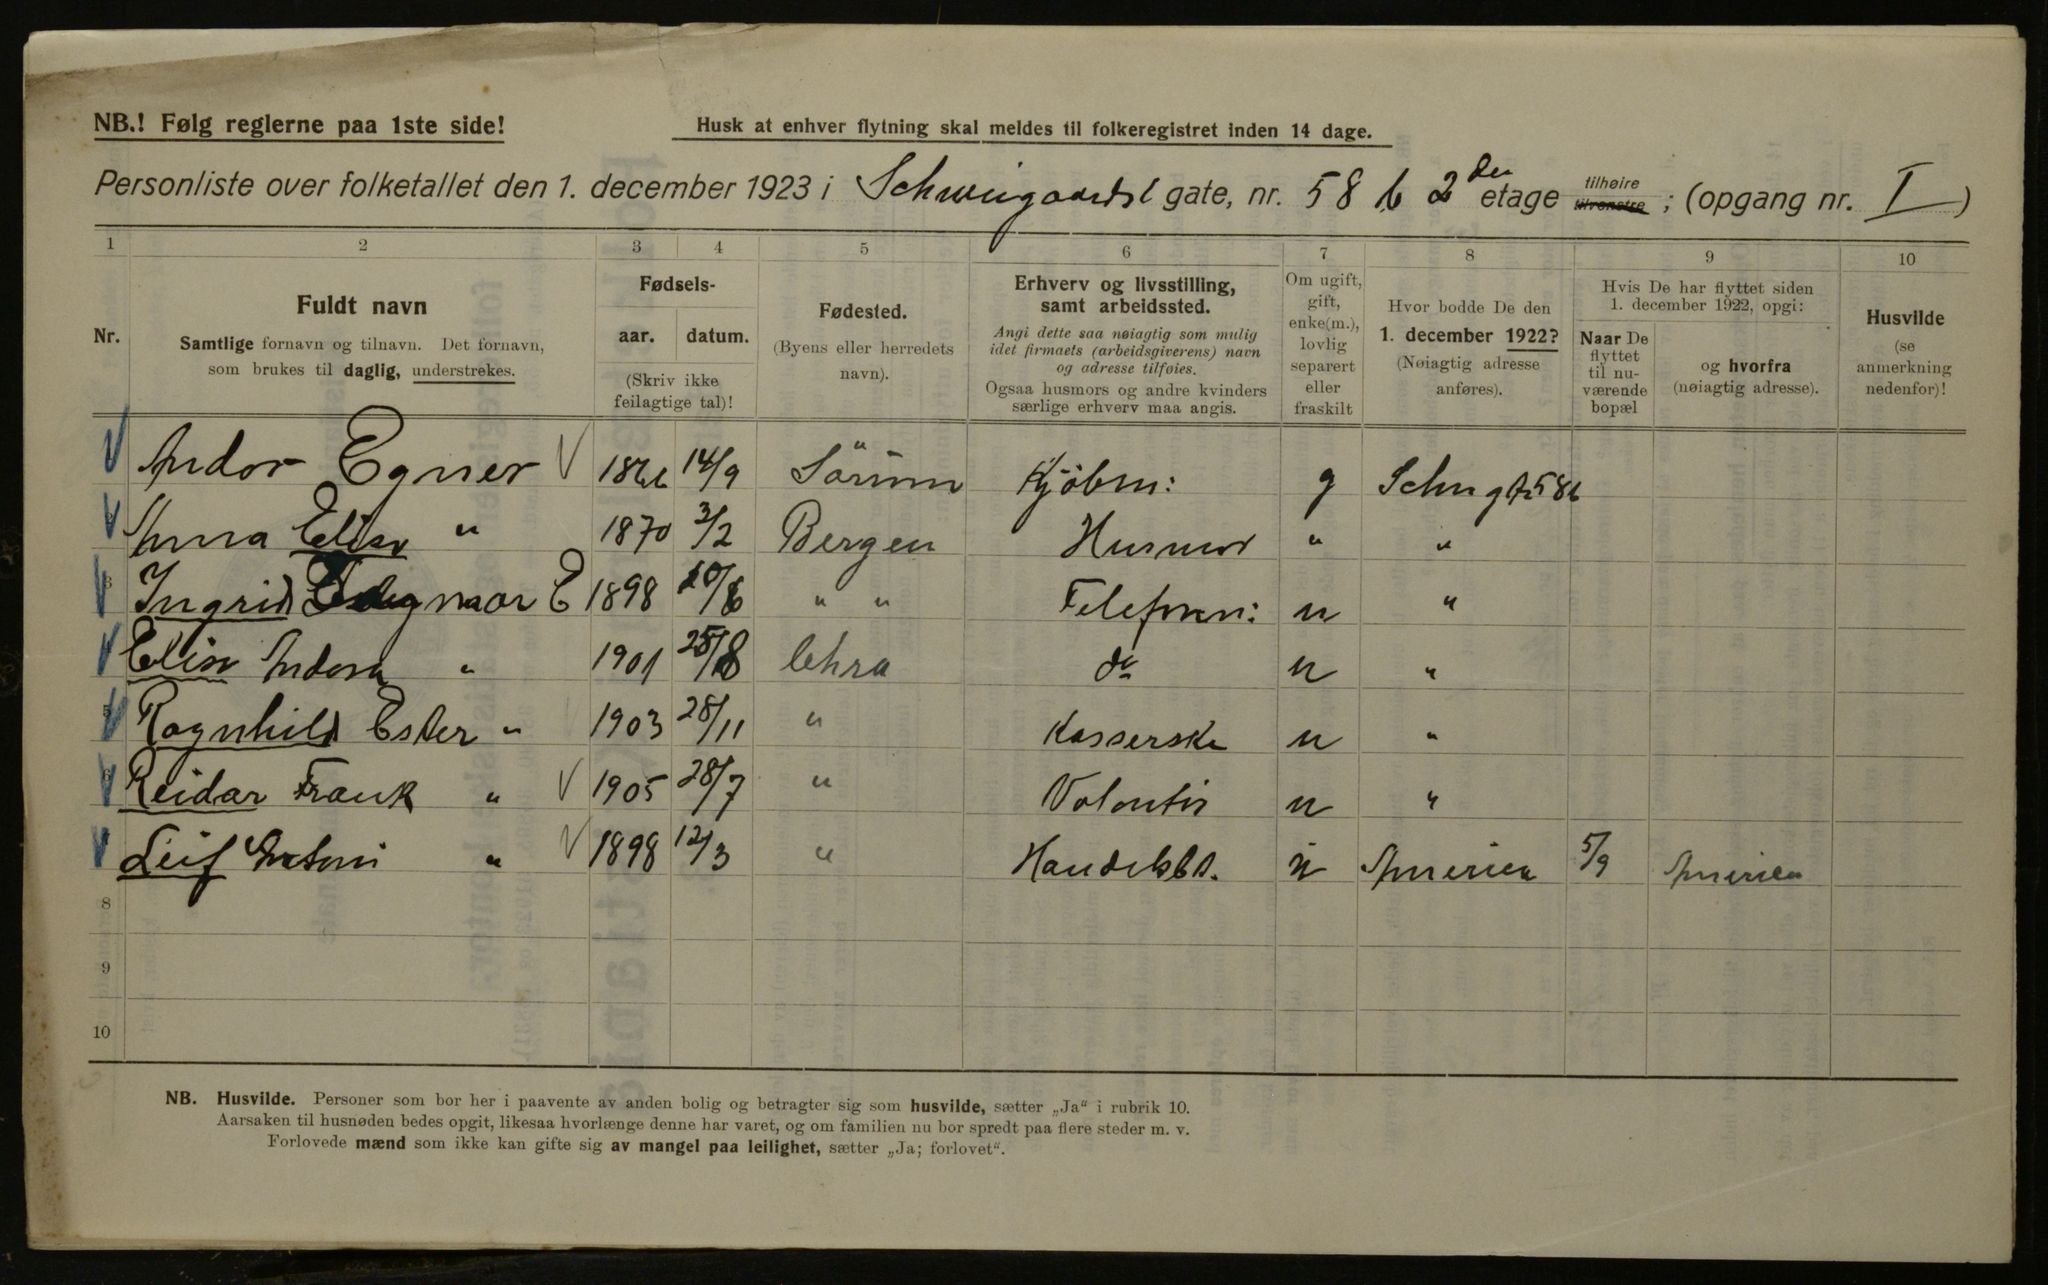 NB.! Følg reglerne paa 1ste side!
Husk at enhver flytning skal meldes til folkeregistret inden 14 dage.
Personliste over folketallet den 1. december 1923 i Schweigaards gate, nr. 58 b 2 den etage tilhøire tilvenstre; (opgang nr. I)
1 2 3 4 5 6 7 8 9 10
Nr.
Fuldt navn
Samtlige fornavn og tilnavn. Det fornavn,
som brukes til daglig, understrekes.
Fødsels-
aar. datum.
(Skriv ikke
feilagtige tal)!
Fødested.
(Byens eller herredets
navn).
Erhverv og livsstilling,
samt arbeidssted.
Angi dette saa nøiagtig som mulig
idet firmaets (arbeidsgiverens) navn
og adresse tilføies.
Ogsaa husmors og andre kvinders
særlige erhverv maa angis.
Om ugift,
gift,
enke(m.),
lovlig
separert
eller
fraskilt
Hvor bodde De den
1. december 1922?
(Nøiagtig adresse
anføres).
Hvis De har flyttet siden
1. december 1922, opgi:
Naar De
flyttet
til nu-
værende
bopæl
og hvorfra
(nøiagtig adresse).
Husvilde
(se
anmerkning
nedenfor)!
Andor Egner 1866 14/9 Sörum Kjöbm: g 58b
Anna Elise " 1870 3/2 Bergen Husmor " "
3 Ingrid Dagmar E 1898 /6 " " Telefon: u "
Elise Andora " 1901 25/8 Chra do u "
5 Ragnhild Ester " 1903 28/11 " Kasserske u "
6 Reidar Frank " 1905 28/7 " Volontör u "
Leif Antoni " 1898 12/3 " Handelsbt. u America 5/9 America
8
9
10
NB. Husvilde. Personer som bor her i paavente av anden bolig og betragter sig som husvilde, sætter „Ja“ i rubrik 10.
Aarsaken til husnøden bedes opgit, likesaa hvorlænge denne har varet, og om familien nu bor spredt paa flere steder m. v.
Forlovede mænd som ikke kan gifte sig av mangel paa leilighet, sætter „Ja; forlovet“.